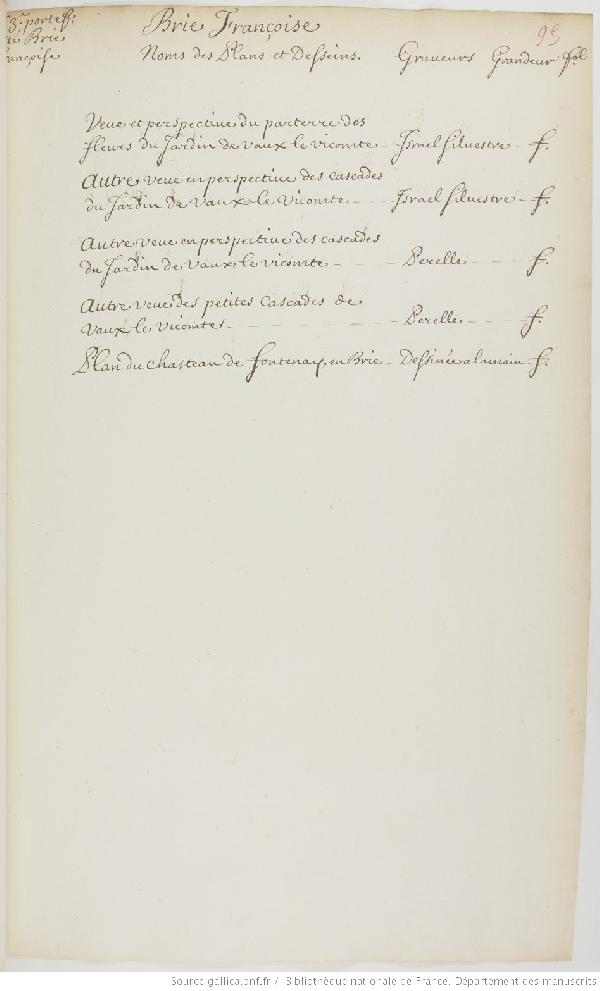 3.e porteff:
Brie
françoise
Brie Françoise
95
Noms des Plans et Desseins. Graveurs Grandeur fol
Veue et perspective du parterre des
fleurs du Jardin de vaux le vicomte - Israel silvestre - f.
Autre veue en perspective des cascades
du Jardin de vaux le vicomte - - - Israel silvestre - f.
Autre veue en perspective des cascades
du Jardin de vaux le vicomte - - - Perelle - - - f.
Autre veue des petites Cascades de
vaux le vicomte - - - - - - - Perelle - - - f.
Plan du chasteau de fontenay en Brie - Dessinée a la main - f.
Source gallica.bnf.fr / Bibliothèque nationale de France, Département des manuscrits